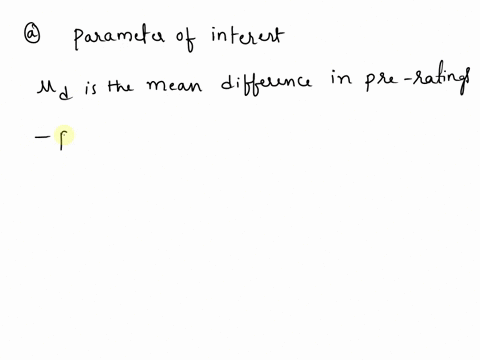 ⓐ Parameter of interest
μd is the mean difference in pre-ratings
— p